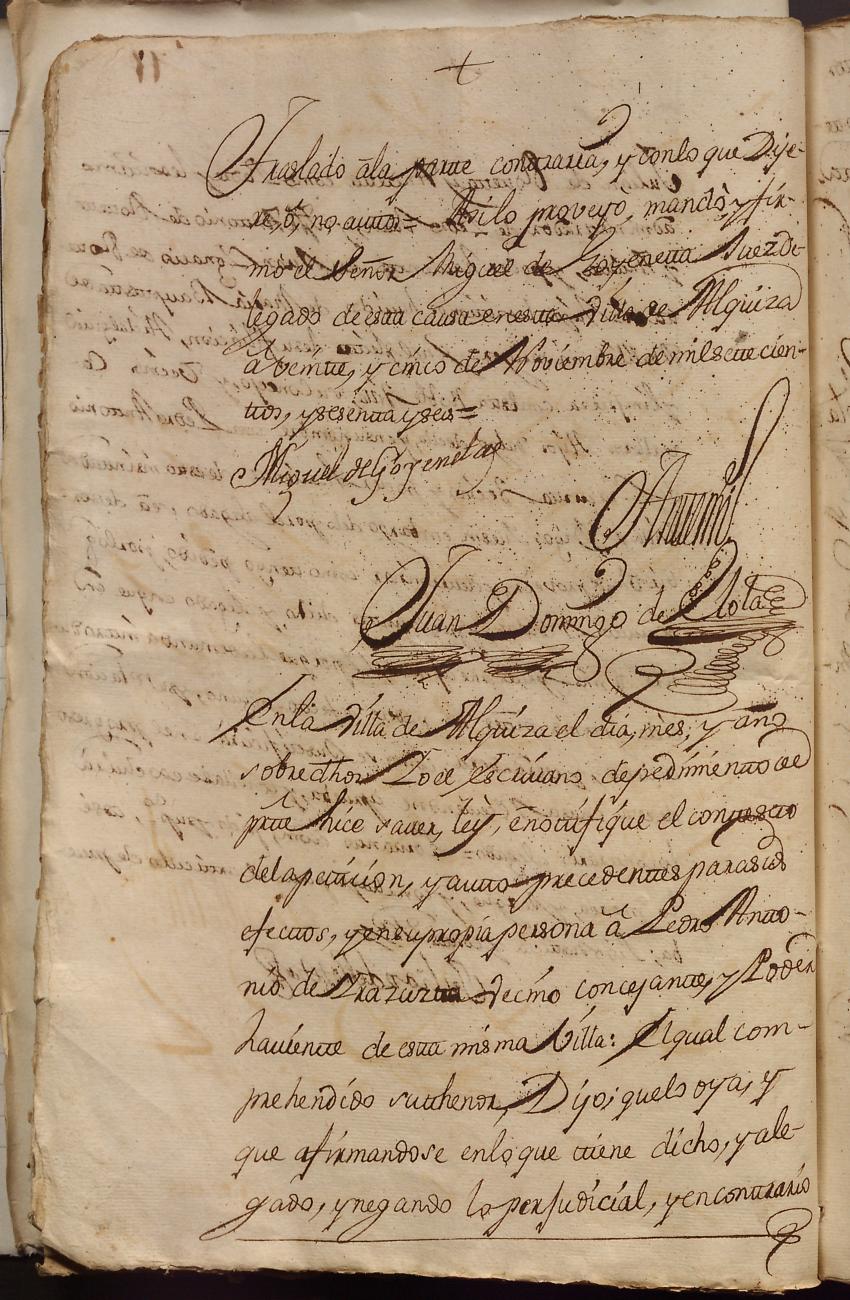 +
Traslado àla parte contraria, y conlo que Dije-
re, ò, no autos= Asilo proveyo, mandò, y fir-
mò el Señor Miguel de Goyeneta Juez De-
legado de esta causa enesta Villa de Alquiza
à veinte, y cinco de Noviembre de mil sete cien-
tos, y sesenta y seis=
Miguel de Goyeneta
Antemi
Juan Domingo de
Enla Villa de Alquiza el dia, mes, y año
sobredhos Yo el Escrivano de pedimento de
prte hice saver, leÿ, e notifique el contexto
dela peticion, y auto precedentes para sus
efectos, y en su propia persona à Pedro Anto-
nio de Yrazuzta vecino concejante, y Poder
haviente de esta misma Villa: El qual com-
prehendido su thenor, Dijo; que lo oya, y
que afirmandose enlo que tiene dicho, y ale-
gado, y negando lo perjudicial, y en contrario